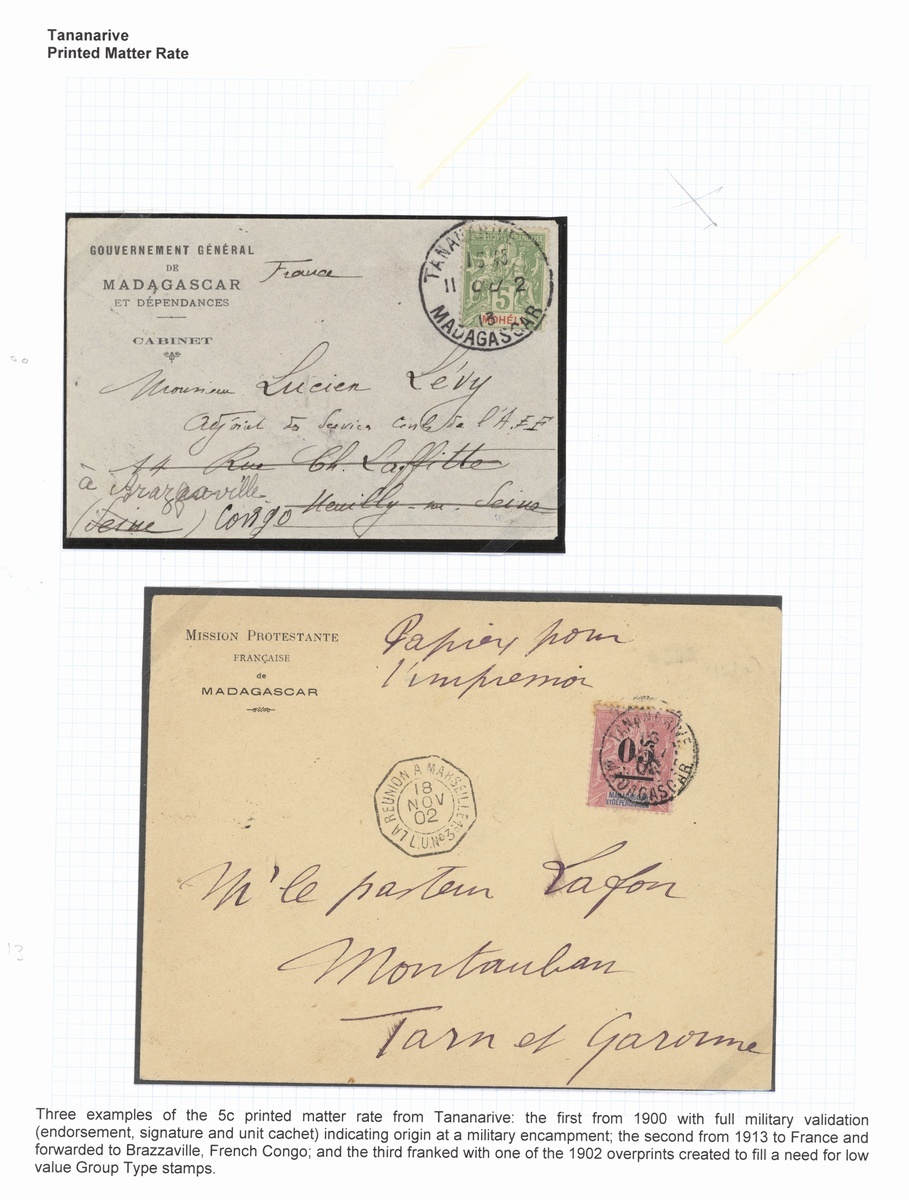 Tananarive
Printed Matter Rate
GOUVERNEMENT GÉNÉRAL
DE
MADAGASCAR
ET DÉPENDANCES
CABINET
France
TANANARIVE
15 45
11 2
13
MADAGASCAR
5
MOHÉLI
Monsieur Lucien Lévy
Adjoint des Services de l'A.E.F
14 Rue Ch. Laffitte
à Brazzaville Neuilly-sur-Seine
(Seine) Congo
MISSION PROTESTANTE
FRANÇAISE
de
MADAGASCAR
Papiers pour
l'impression
TANANARIVE
MADAGASCAR
05
LA REUNION A MARSEILLE
18
NOV
02
L.U.Nº3
M'le pasteur Lafon
Montauban
Tarn et Garonne
Three examples of the 5c printed matter rate from Tananarive: the first from 1900 with full military validation
(endorsement, signature and unit cachet) indicating origin at a military encampment; the second from 1913 to France and
forwarded to Brazzaville, French Congo; and the third franked with one of the 1902 overprints created to fill a need for low
value Group Type stamps.